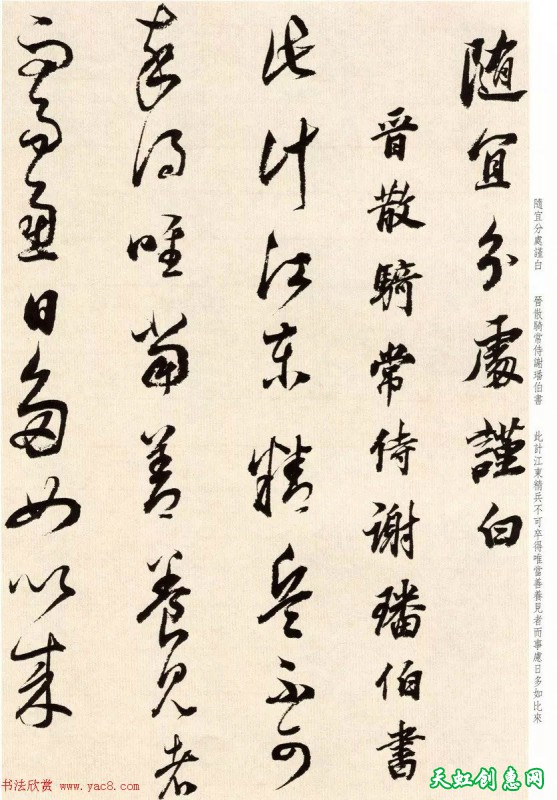 随宜分處謹白
晉散騎常侍謝璠伯書
此計江東精兵不可
卒得唯當善養見者
而事慮日多如比來
隨宜分處謹白 晉散騎常侍謝璠伯書 此計江東精兵不可卒得唯當善養見者而事慮日多如比來
书法欣赏 www.yac8.com
天虹创惠网